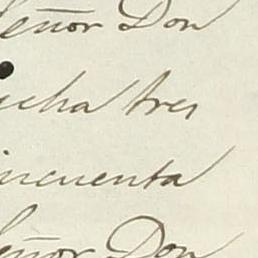 Señor Don
ucha tres
incuenta
Señor Don